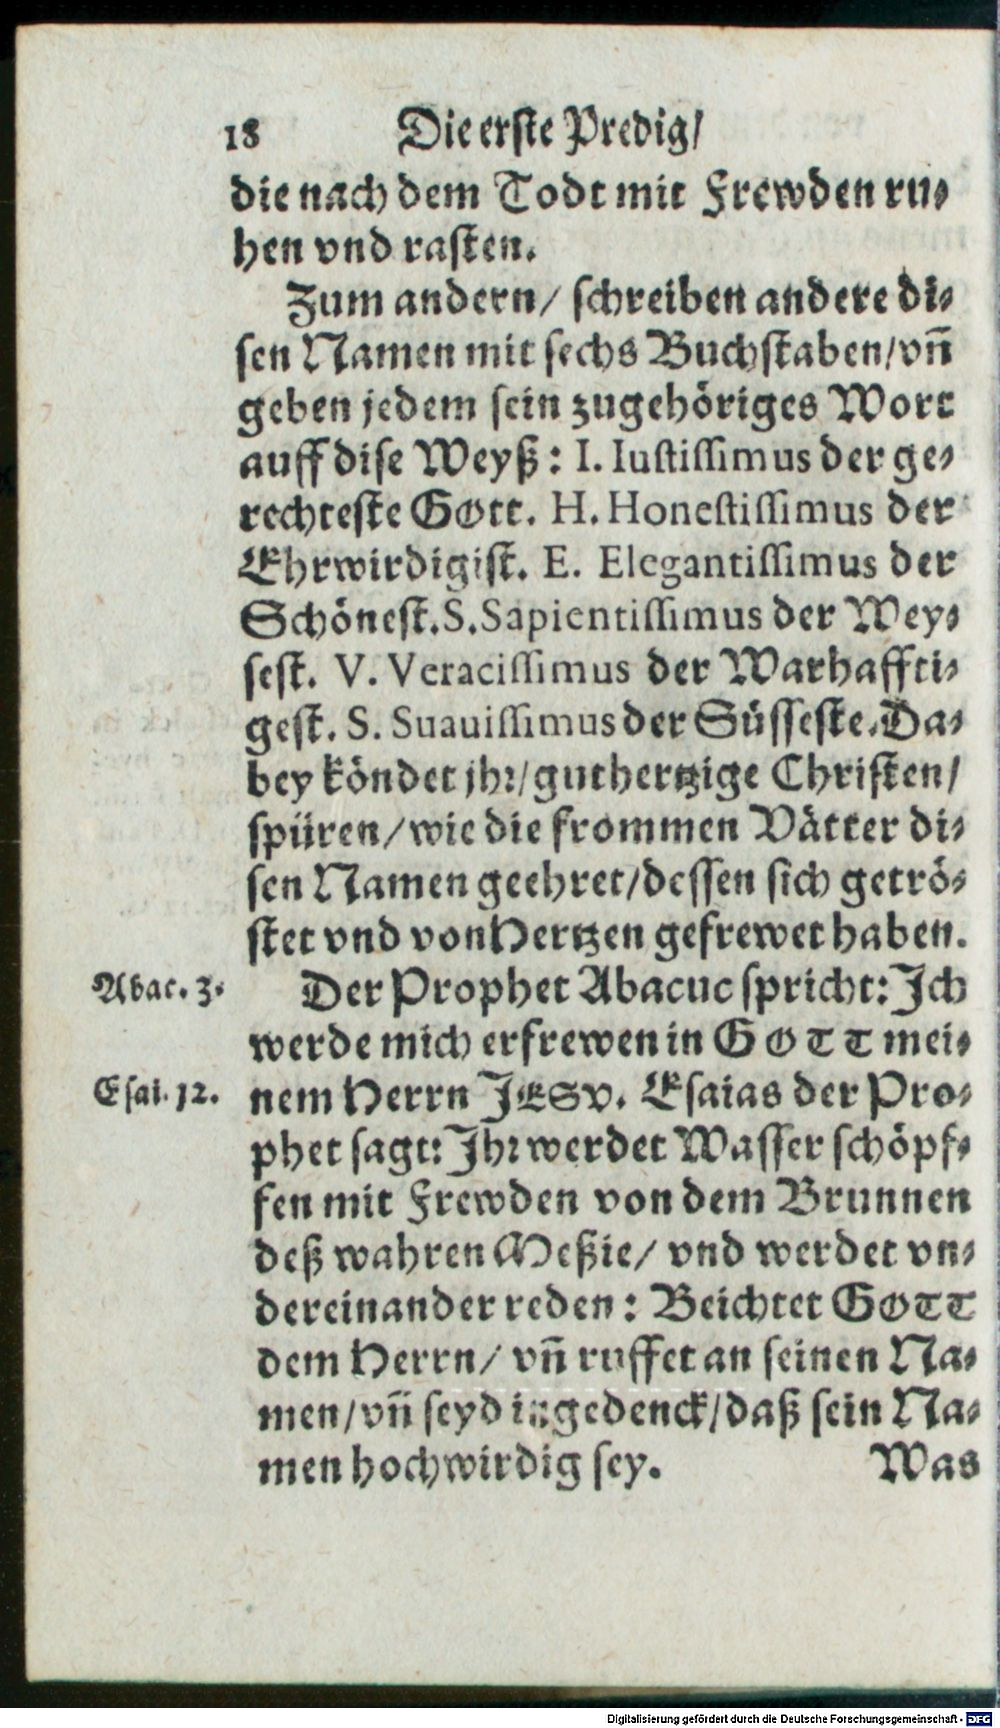 18 Die erste Predig/
die nach dem Todt mit Frewden ru-
hen vnd rasten.
Zum andern/ schreiben andere di-
sen Namen mit sechs Buchstaben/vñ
geben jedem sein zugehöriges Wort
auff dise Weyß: I. Iustissimus der ge-
rechteste Gott. H. Honestissimus der
Ehrwirdigist. E. Elegantissimus der
Schönest. S. Sapientissimus der Wey-
sest. V. Veracissimus der Warhaffti-
gest. S. Suauissimus der Süsseste. Da-
bey köndet jhr/guthertzige Christen/
spüren/wie die frommen Vätter di-
sen Namen geehret/dessen sich getrö-
stet vnd von Hertzen gefrewet haben.
Abac. 3. Der Prophet Abacuc spricht: Ich
werde mich erfrewen in GOTT mei-
Esai. 12. nem Herrn JESV. Esaias der Pro-
phet sagt: Ihr werdet Wasser schöpf-
fen mit Frewden von dem Brunnen
deß wahren Meßie/ vnd werdet vn-
dereinander reden: Beichtet GOTT
dem Herrn/ vñ ruffet an seinen Na-
men/vñ seyd ingedenck/daß sein Na-
men hochwirdig sey. Was
Digitalisierung gefördert durch die Deutsche Forschungsgemeinschaft - DFG